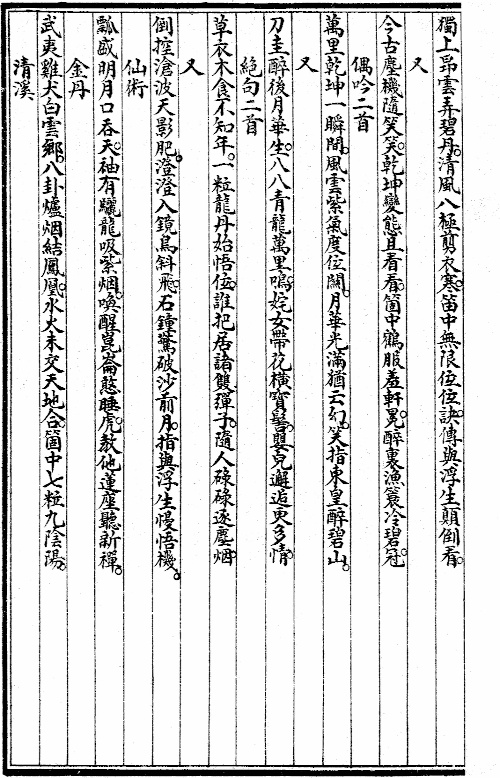 獨上昂雲弄碧丹。清風八極剪衣寒。笛中無限位位訣。傳與浮生顛倒看。
又
今古塵機隨笑笑。乾坤變態且看看。箇中鶴服羞軒冕。醉裏漁簑冷碧冠。
偶吟二首
萬里乾坤一瞬間。風雲紫氣度位關。月華光滿猶云幻。笑指東皇醉碧山。
又
刀圭醉後月華生。八八青龍萬里鳴。姹女帶花橫寶髻。嬰兒邂逅更多情。
絕句二首
草衣木食不知年。一粒龍丹始悟位。誰把居諸雙彈子。隨人碌碌逐塵烟。
又
倒搾滄波天影肥。澄澄入鏡鳥斜飛。石鐘驚破沙前月。指與浮生慢悟機。
仙術
瓢盛明月口吞天。袖有驪龍吸紫烟。喚醒崑崙憨睡虎。教他蓮座聽新禪。
金丹
武夷雞犬白雲鄉。八卦爐烟結鳳凰。水火未交天地合。箇中七粒九陰陽。
清溪